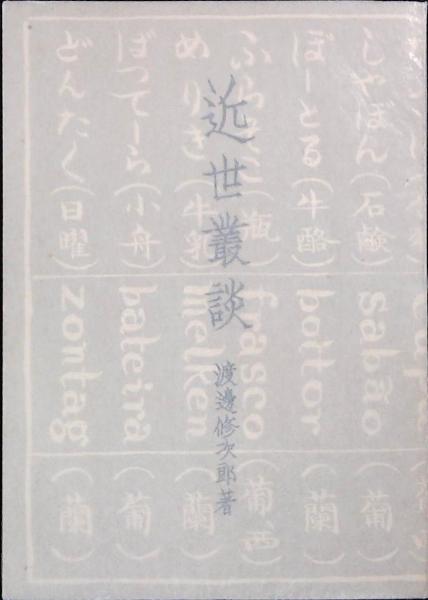 近世叢談
渡邊修次郎著
しやぼん(石鹸) sabão (葡)
ぼーとる(牛酪) bottor (蘭)
frasco (葡、西)
めりき(牛乳) melken (蘭)
ばつてーら(小舟) bateira (葡)
どんたく(日曜) zontag (蘭)